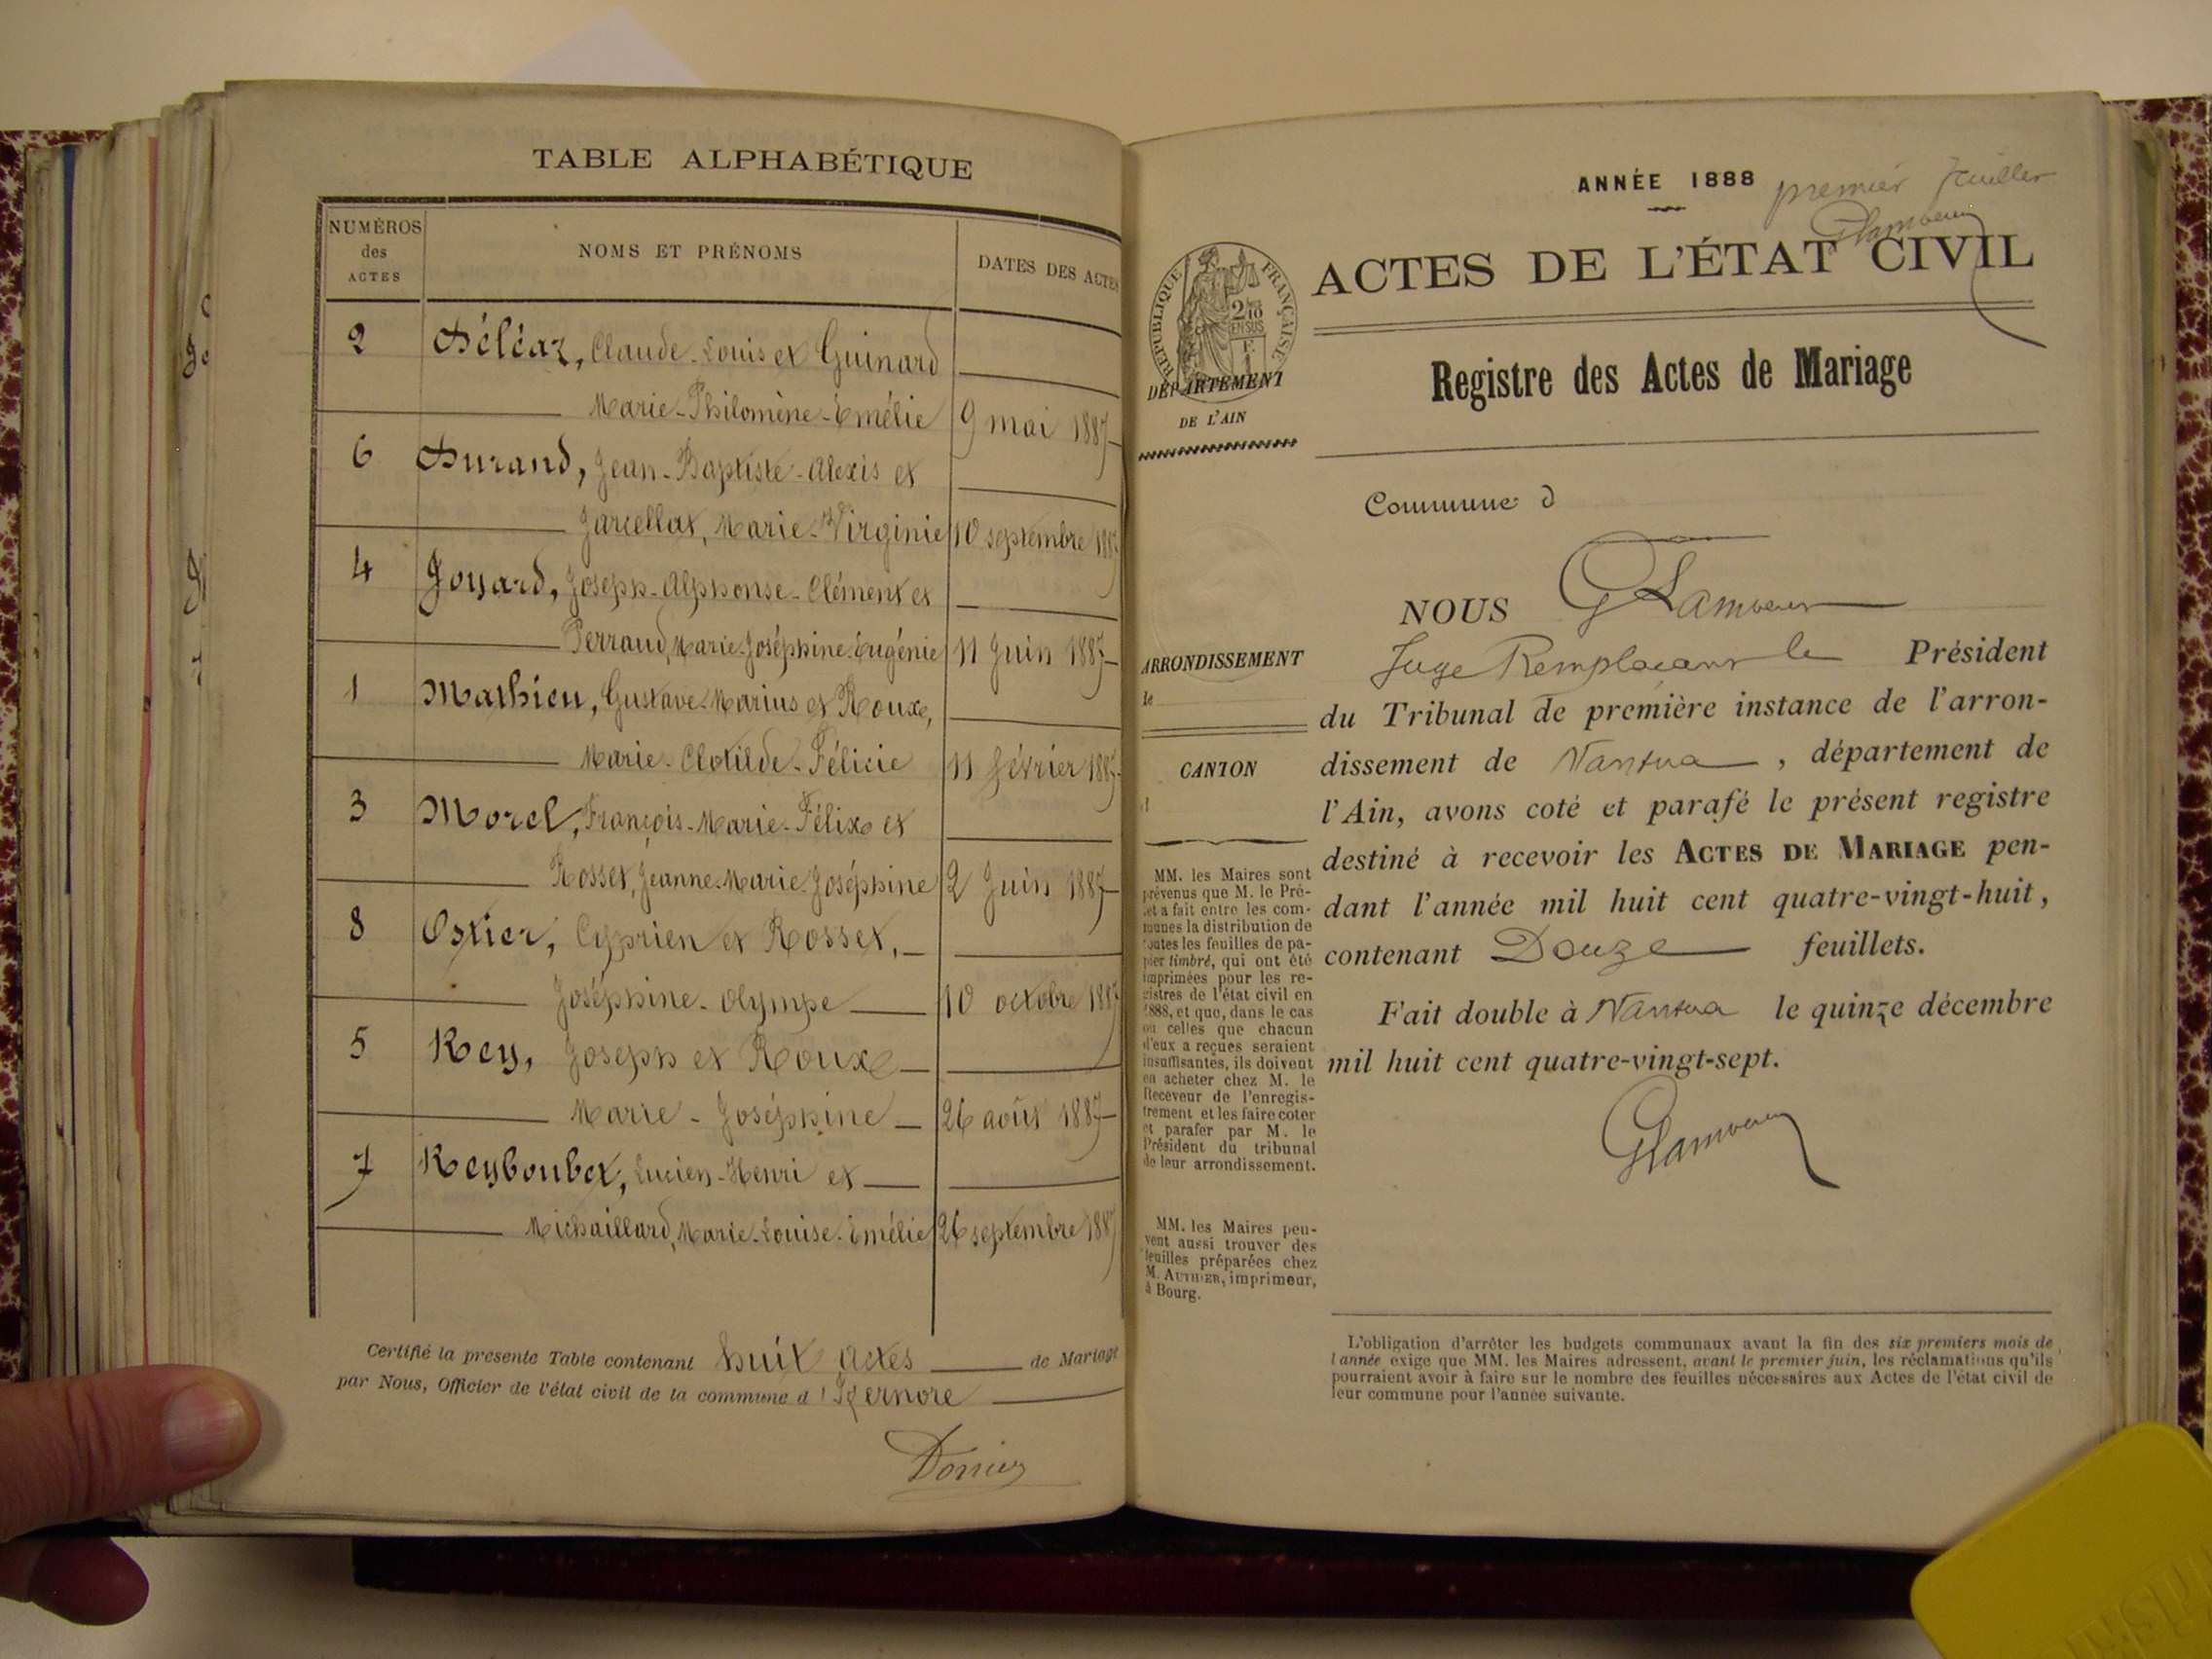 TABLE ALPHABÉTIQUE
NUMÉROS
des
ACTES
NOMS ET PRÉNOMS
DATES DES ACTES
2 Déléaz, Claude-Louis et Guinard
Marie-Philomène-Emélie 9 mai 1887
6 Durand, Jean-Baptiste-Alexis et
Jarcellat, Marie-Virginie 10 septembre 1887
4 Goyard, Joseph-Alphonse-Clément et
Perraud, Marie-Joséphine-Eugénie 11 Juin 1887
1 Mathieu, Gustave-Marius et Roux,
Marie-Clotilde-Félicie 11 février 1887
3 Morel, François-Marie-Félix et
Rosset, Jeanne-Marie-Joséphine 2 Juin 1887
8 Ostier, Cyprien et Rosset,
Joséphine-Olympe 10 octobre 1887
5 Rey, Joseph et Roux
Marie-Joséphine 26 août 1887
7 Reyboubet, Lucien-Henri et
Michaillard, Marie-Louise-Emélie 26 septembre 1887
Certifié la présente Table contenant huit actes de Mariage
par Nous, Officier de l'état civil de la commune d'Izernore
ANNÉE 1888
premier feuillet
ACTES DE L'ÉTAT CIVIL
Registre des Actes de Mariage
RÉPUBLIQUE FRANÇAISE
2/10
EN SUS
DÉPARTEMENT
DE L'AIN
Commune d
ARRONDISSEMENT
de
CANTON
d
NOUS
Juge Remplaçant le Président
du Tribunal de première instance de l'arron-
dissement de Nantua, département de
l'Ain, avons coté et parafé le présent registre
destiné à recevoir les ACTES DE MARIAGE pen-
dant l'année mil huit cent quatre-vingt-huit,
contenant Douze feuillets.
Fait double à Nantua le quinze décembre
mil huit cent quatre-vingt-sept.
MM. les Maires sont
prévenus que M. le Pré-
fet a fait entre les com-
munes la distribution de
toutes les feuilles de pa-
pier timbré, qui ont été
imprimées pour les re-
gistres de l'état civil en
1888, et que, dans le cas
où celles que chacun
d'eux a reçues seraient
insuffisantes, ils doivent
en acheter chez M. le
Receveur de l'enregis-
trement et les faire coter
et parafer par M. le
Président du tribunal
de leur arrondissement.
MM. les Maires peu-
vent aussi trouver des
feuilles préparées chez
M. AUTHIER, imprimeur,
à Bourg.
L'obligation d'arrêter les budgets communaux avant la fin des six premiers mois de
l'année exige que MM. les Maires adressent, avant le premier juin, les réclamations qu'ils
pourraient avoir à faire sur le nombre des feuilles nécessaires aux Actes de l'état civil de
leur commune pour l'année suivante.